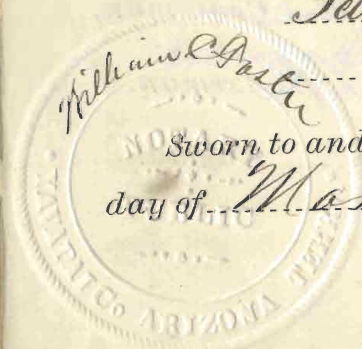 William C Foster
Sworn to and
day of Ma
NOTARY
PUBLIC
YAVAPAI Co ARIZONA TER